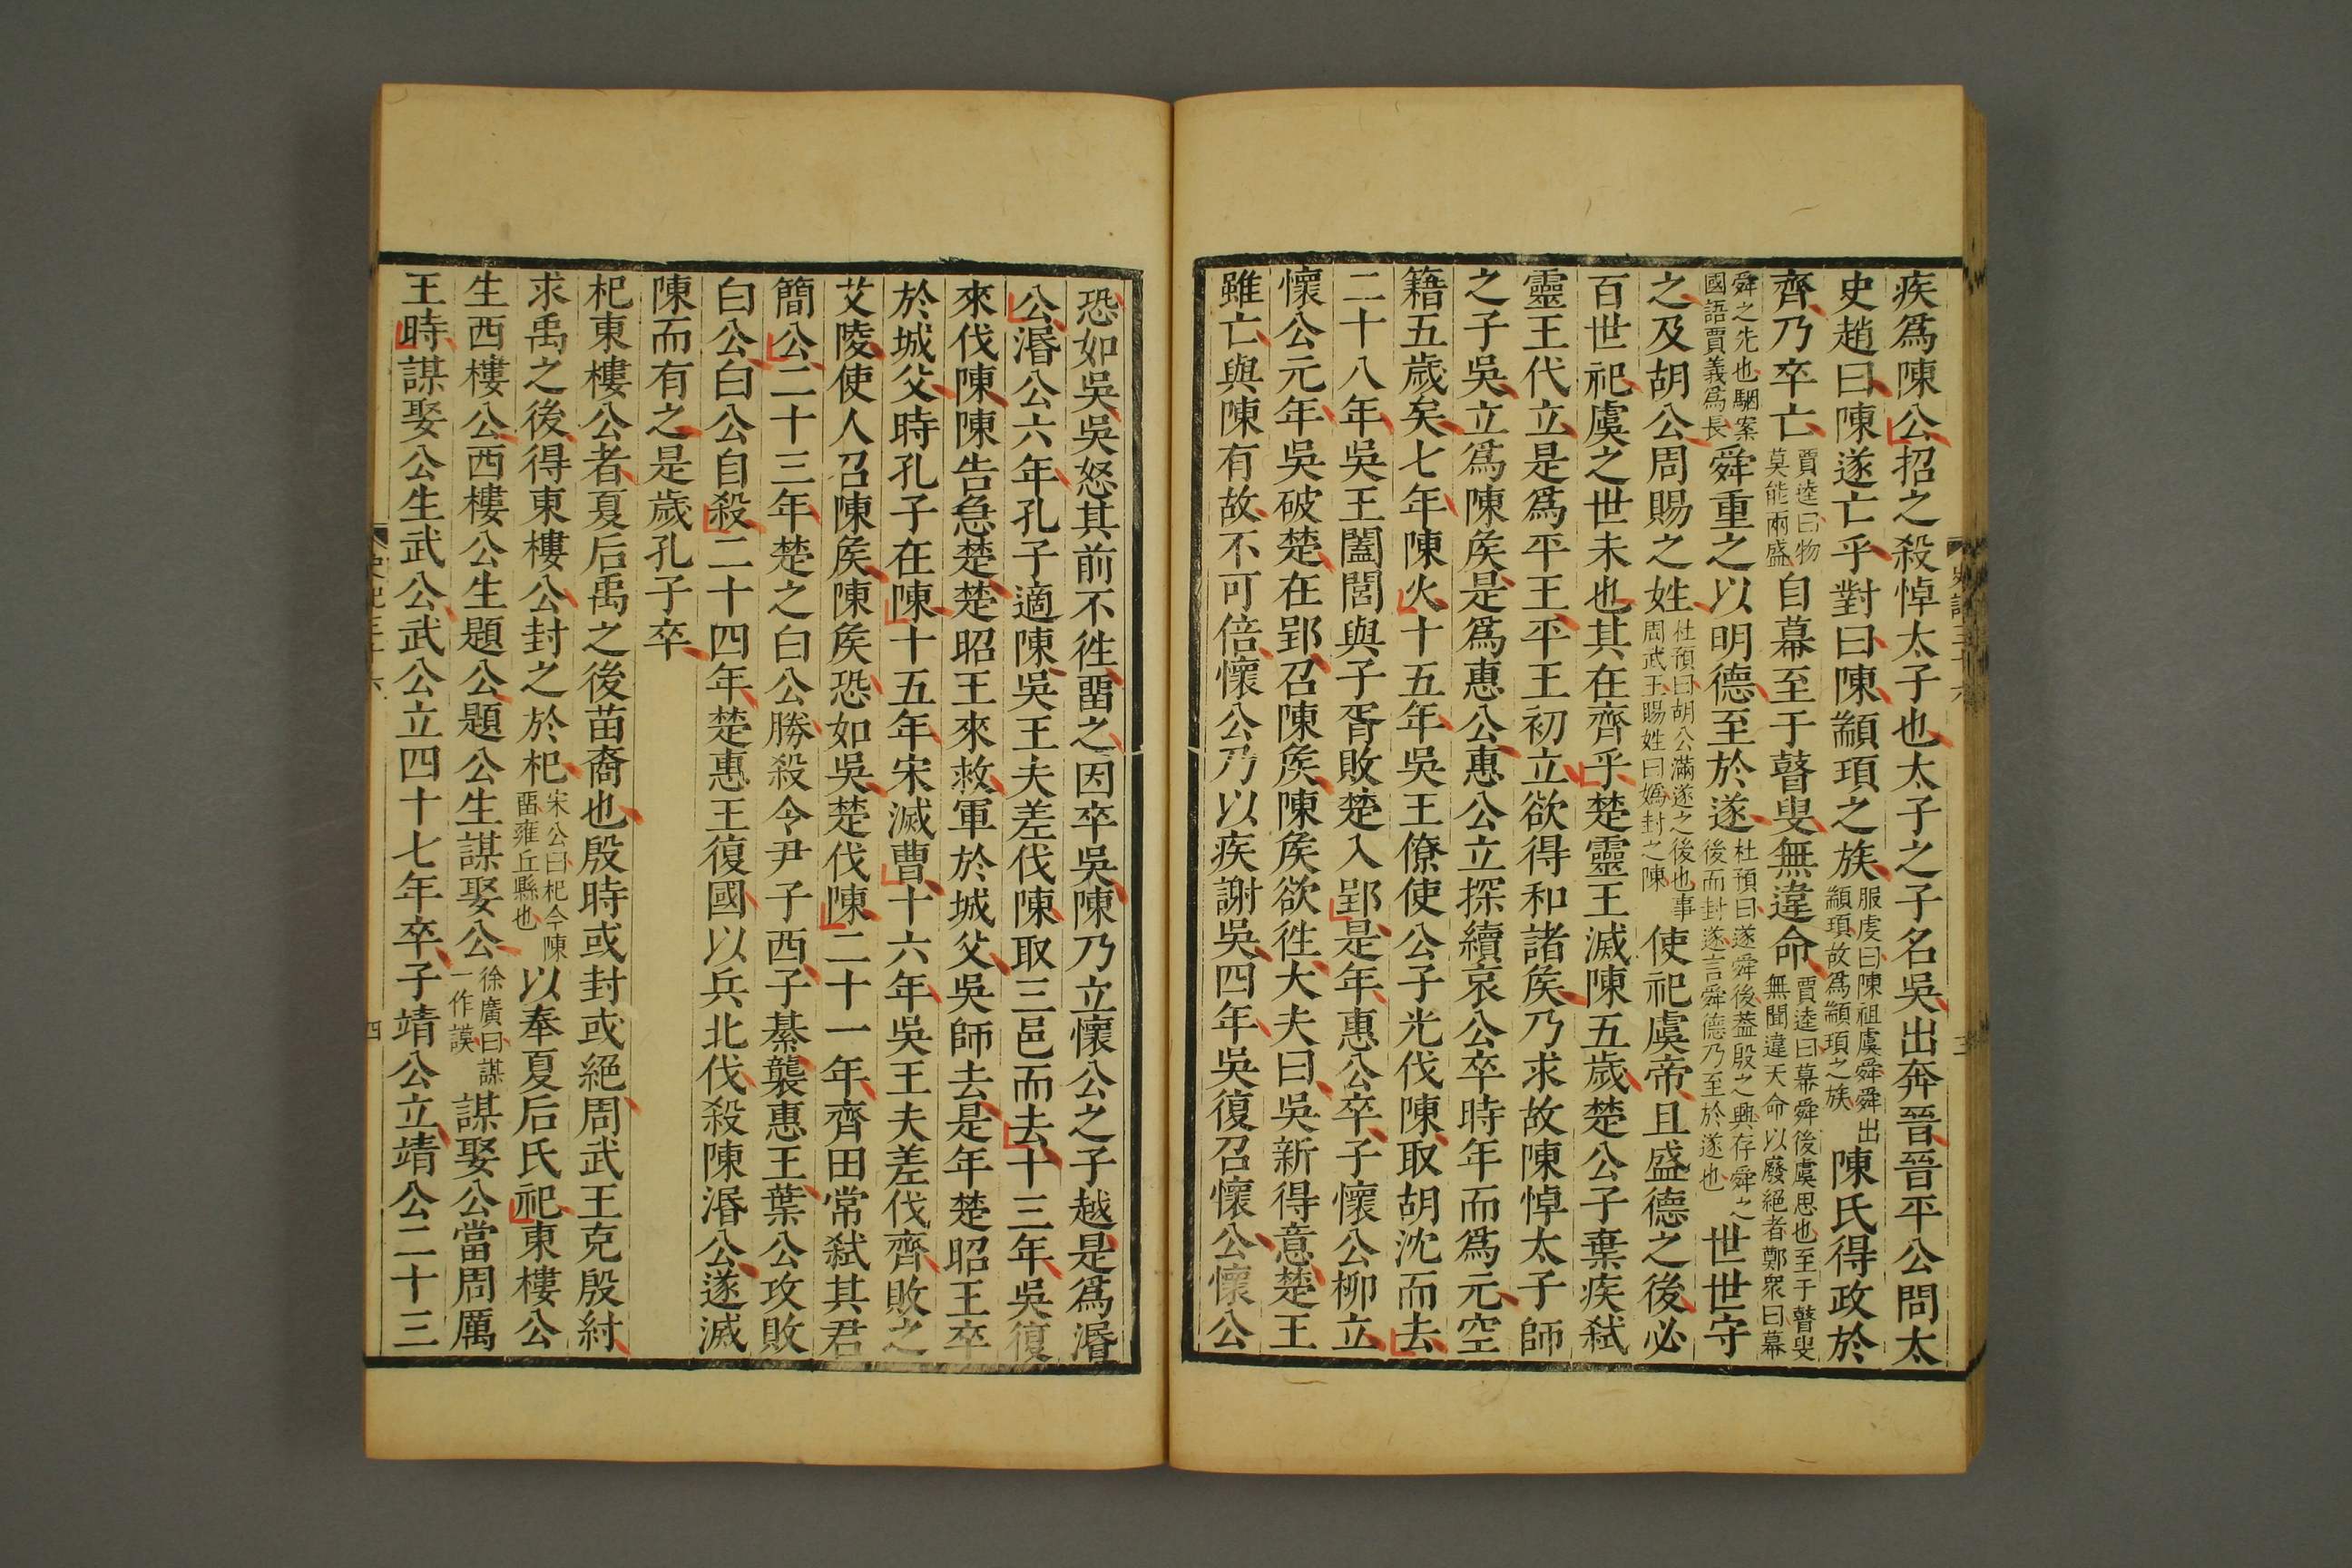 疾爲陳公招之殺悼太子也太子之子名吳出奔晉晉平公問太
史趙曰陳遂亡乎對曰陳顓頊之族
服虔曰陳祖虞舜舜出
顓頊故爲顓頊之族
陳氏得政於
齊乃卒亡
賈逵曰物
莫能兩盛
自幕至于瞽叟無違命
賈逵曰幕舜後虞思也至于瞽叟
無聞違天命以廢絕者鄭衆曰幕
舜之先也駰案
國語賈義爲長
舜重之以明德至於遂
杜預曰遂舜後蓋殷之興存舜之
後而封遂言舜德乃至於遂也
世世守
之及胡公周賜之姓
杜預曰胡公滿遂之後也事
周武王賜姓曰嬀封之陳
使祀虞帝且盛德之後必
百世祀虞之世未也其在齊乎楚靈王滅陳五歲楚公子棄疾弒
靈王代立是爲平王平王初立欲得和諸矦乃求故陳悼太子師
之子吳立爲陳矦是爲惠公惠公立探續哀公卒時年而爲元空
籍五歲矣七年陳火十五年吳王僚使公子光伐陳取胡沈而去
二十八年吳王闔閭與子胥敗楚入郢是年惠公卒子懷公柳立
懷公元年吳破楚在郢召陳矦陳矦欲徃大夫曰吳新得意楚王
雖亡與陳有故不可倍懷公乃以疾謝吳四年吳復召懷公懷公
恐如吳吳怒其前不徃畱之因卒吳陳乃立懷公之子越是爲湣
公湣公六年孔子適陳吳王夫差伐陳取三邑而去十三年吳復
來伐陳陳告急楚楚昭王來救軍於城父吳師去是年楚昭王卒
於城父時孔子在陳十五年宋滅曹十六年吳王夫差伐齊敗之
艾陵使人召陳矦陳矦恐如吳楚伐陳二十一年齊田常弒其君
簡公二十三年楚之白公勝殺令尹子西子綦襲惠王葉公攻敗
白公白公自殺二十四年楚惠王復國以兵北伐殺陳湣公遂滅
陳而有之是歲孔子卒
杞東樓公者夏后禹之後苗裔也殷時或封或絕周武王克殷紂
求禹之後得東樓公封之於杞
宋公曰杞今陳
畱雍丘縣也
以奉夏后氏祀東樓公
生西樓公西樓公生題公題公生謀娶公
徐廣曰謀
一作謨
謀娶公當周厲
王時謀娶公生武公武公立四十七年卒子靖公立靖公二十三
史記三十六
三
四